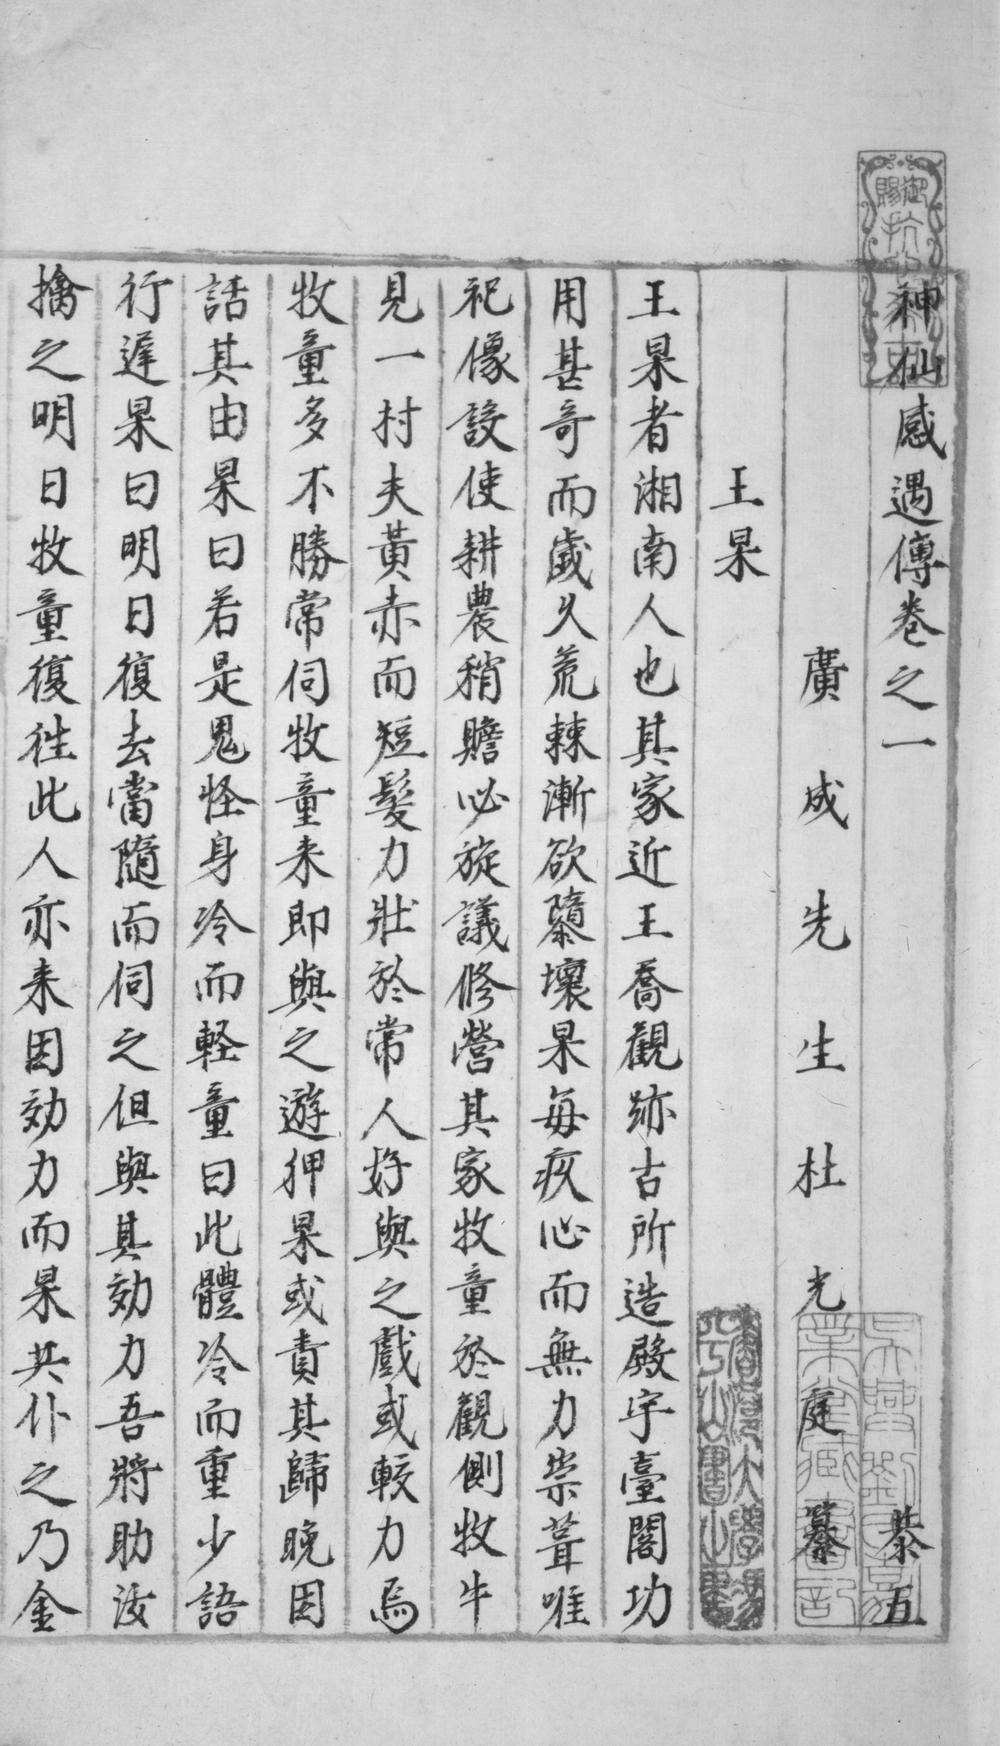 神仙感遇傳卷之一 恭五
廣成先生杜光庭纂
王杲
王杲者湘南人也其家近王喬觀跡古所造殿宇臺閣功
用甚奇而歲久荒棘漸欲隳壞杲每疚心而無力崇葺唯
祀像設使耕農稍贍必旋議修營其家牧童於觀側牧牛
見一村夫黃赤而短髮力壯於常人好與之戲或較力焉
牧童多不勝常伺牧童来即與之遊狎杲或責其歸晚因
話其由杲曰若是鬼怪身冷而軽童曰此體冷而重少語
行遲杲曰明日復去當隨而伺之但與其効力吾將助汝
擒之明日牧童復徃此人亦来因効力而杲共仆之乃金
御賜